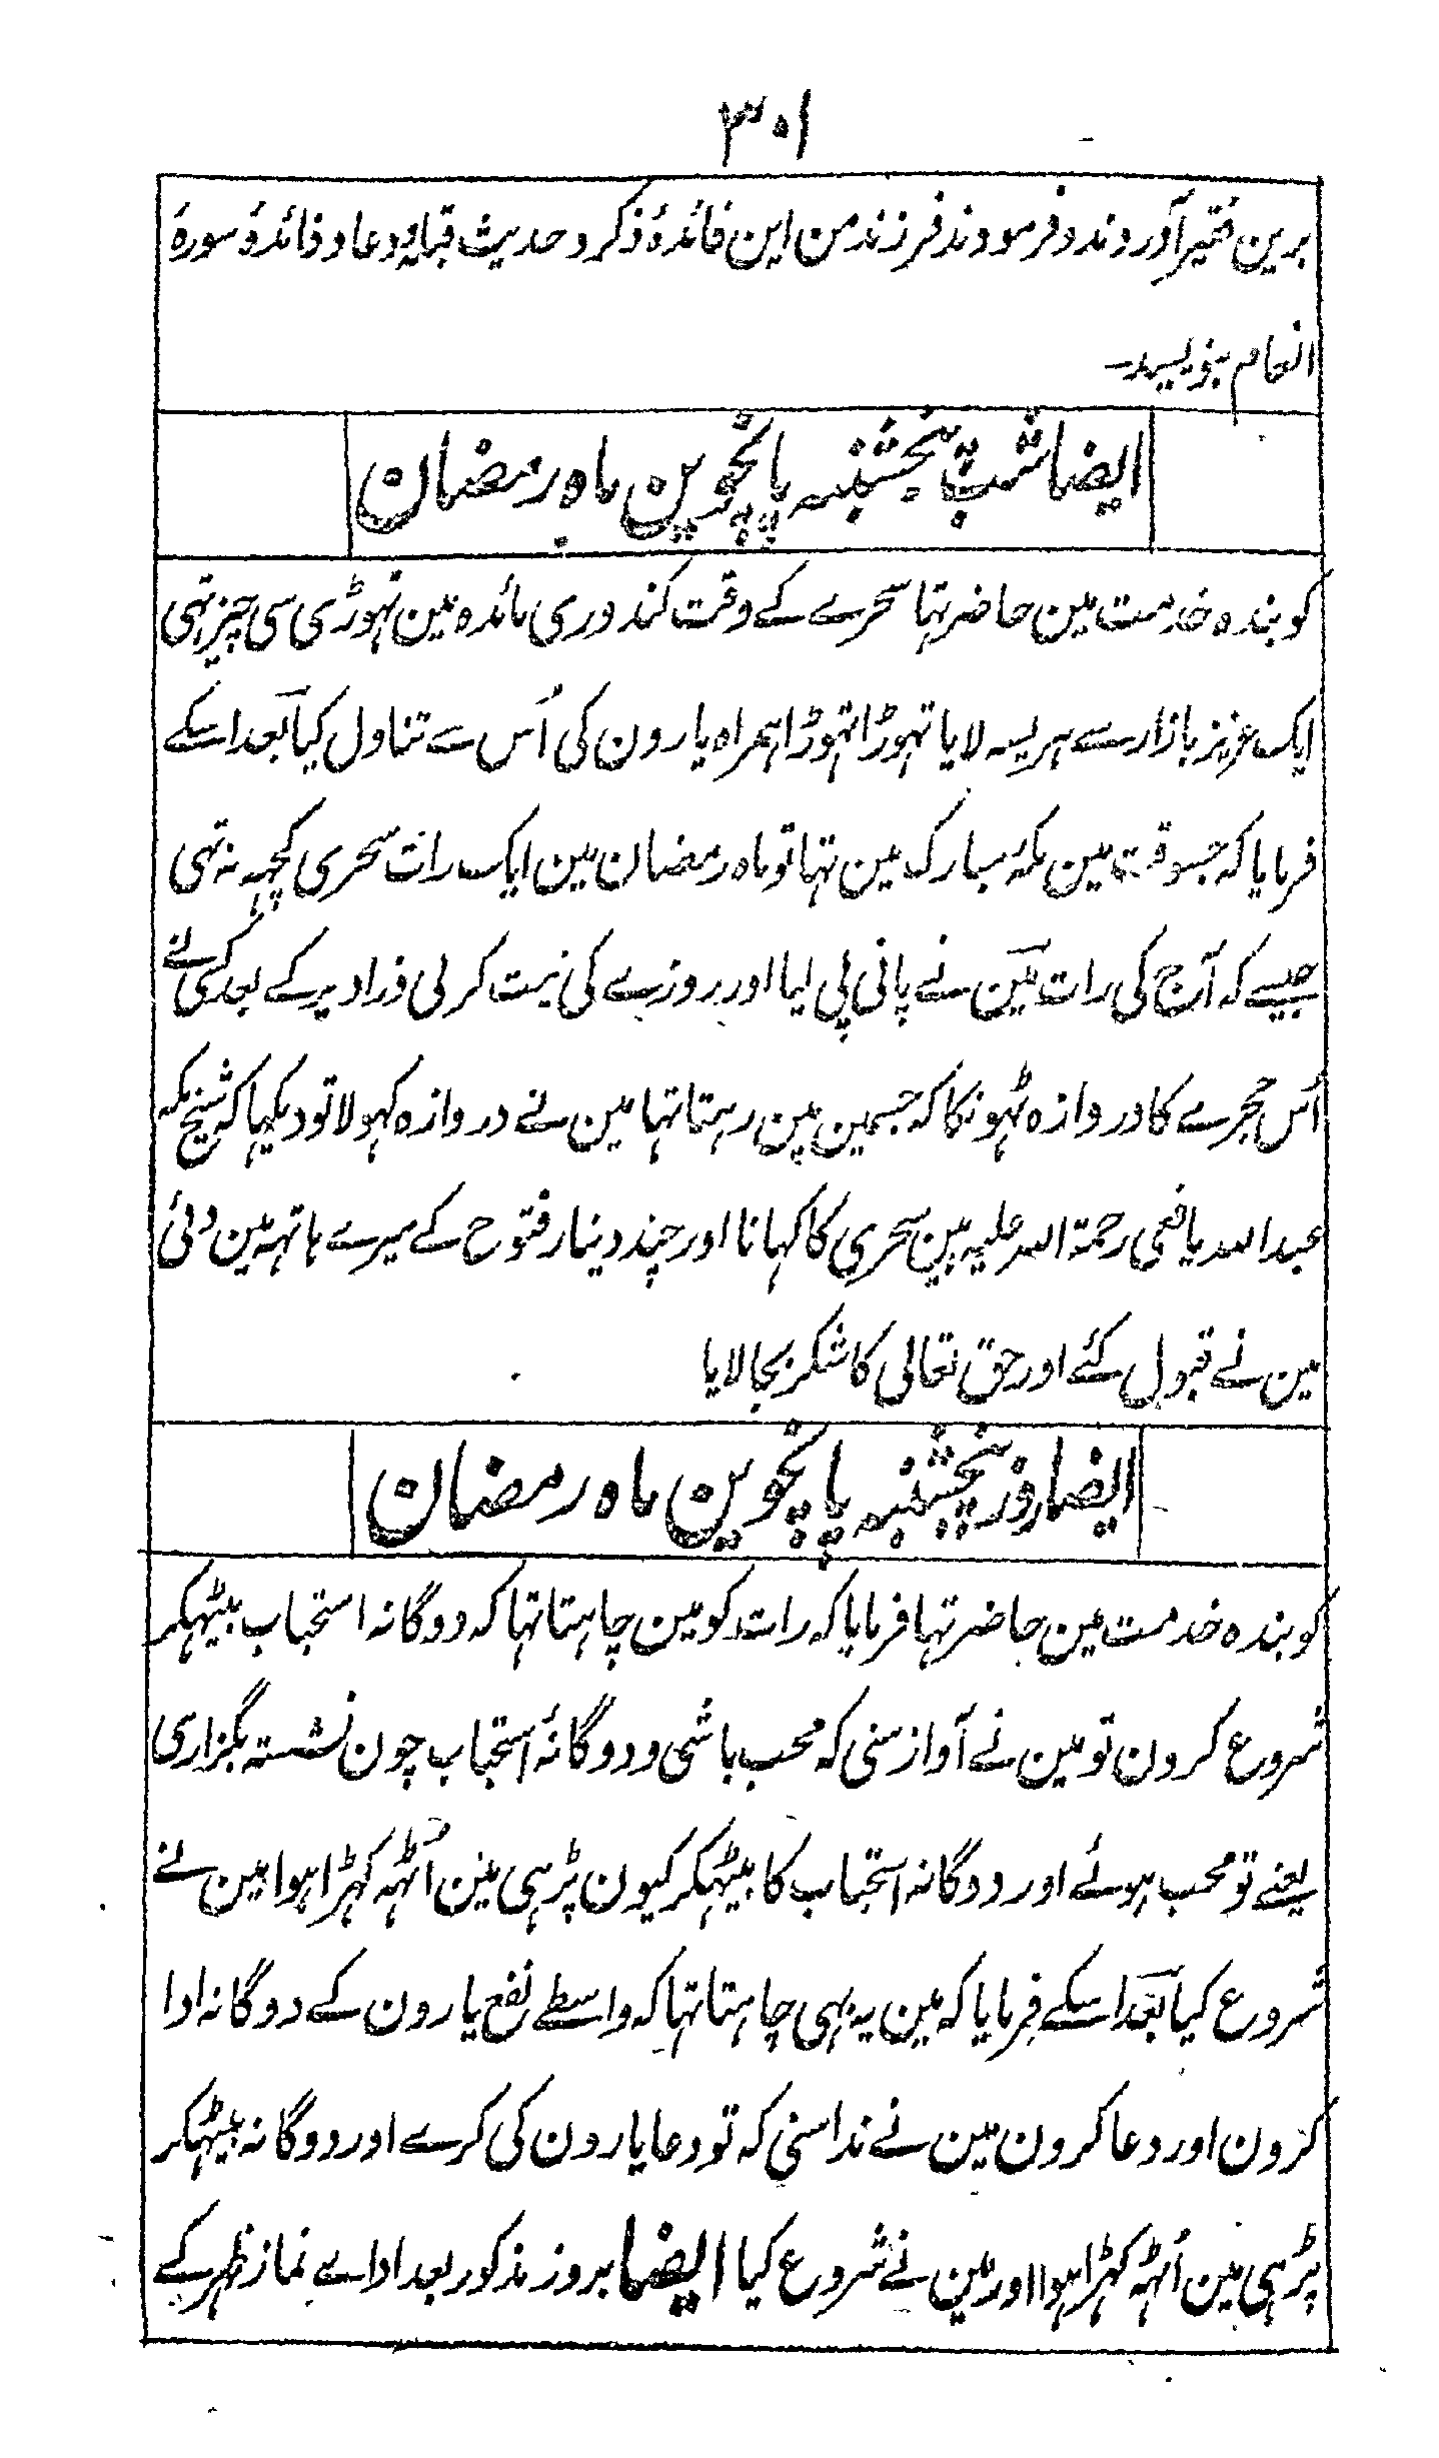 ۳۰۱
برین فقیر آوردند و فرمودند فرزند من این فائدهٔ ذکر و حدیث قبایه و دعا و فائدهٔ سورهٔ
انعام بنویسید۔
ایضا شب پنجشنبہ پانچوین ماہ رمضان
کو بندہ خدمت مین حاضر تہا سحرے کے وقت کندوری مائدہ مین تہوڑی سی چیز تہی
ایک عزیز بازار سے ہریسہ لایا تہوڑا تہوڑا ہمراہ یارون کی اُس سے تناول کیا بعد اسکے
فرمایا کہ جسوقت مین مکۂ مبارک مین تہا تو ماہ رمضان مین ایک رات سحری کچہہ نہ تہی
جیسے کہ آج کی رات مین نے پانی پی لیا اور روزے کی نیت کر لی ذرا دیر کے بعد کسی نے
اُس حجرے کا دروازہ ٹہونکا کہ جسمین مین رہتا تہا مین نے دروازہ کہولا تو دیکہا کہ شیخ مکہ
عبد اللہ یافعی رحمۃ اللہ علیہ ہین سحری کا کہانا اور چند دینار فتوح کے میرے ہاتہہ مین دئی
مین نے قبول کئے اور حق تعالی کا شکر بجا لایا
ایضا روز پنجشنبہ پانچوین ماہ رمضان
کو بندہ خدمت مین حاضر تہا فرمایا کہ رات کو مین چاہتا تہا کہ دوگانہ استحباب بیٹہکر
شروع کرون تو مین نے آواز سنی کہ محب باشی و دوگانۂ استحباب چون نشستہ بگزاری
یعنے تو محب ہوئے اور دوگانہ استحباب کا بیٹہکر کیون پڑہی مین اُٹہہ کہڑا ہوا مین نے
شروع کیا بعد اسکے فرمایا کہ مین یہ بہی چاہتا تہا کہ واسطے نفع یارون کے دوگانہ ادا
کرون اور دعا کرون مین نے ندا سنی کہ تو دعا یارون کی کرے اور دوگانہ بیٹہکر
پڑہی مین اُٹہہ کہڑا ہوا اور مین نے شروع کیا ایضا بروز مذکور بعد اداے نماز ظہر کے